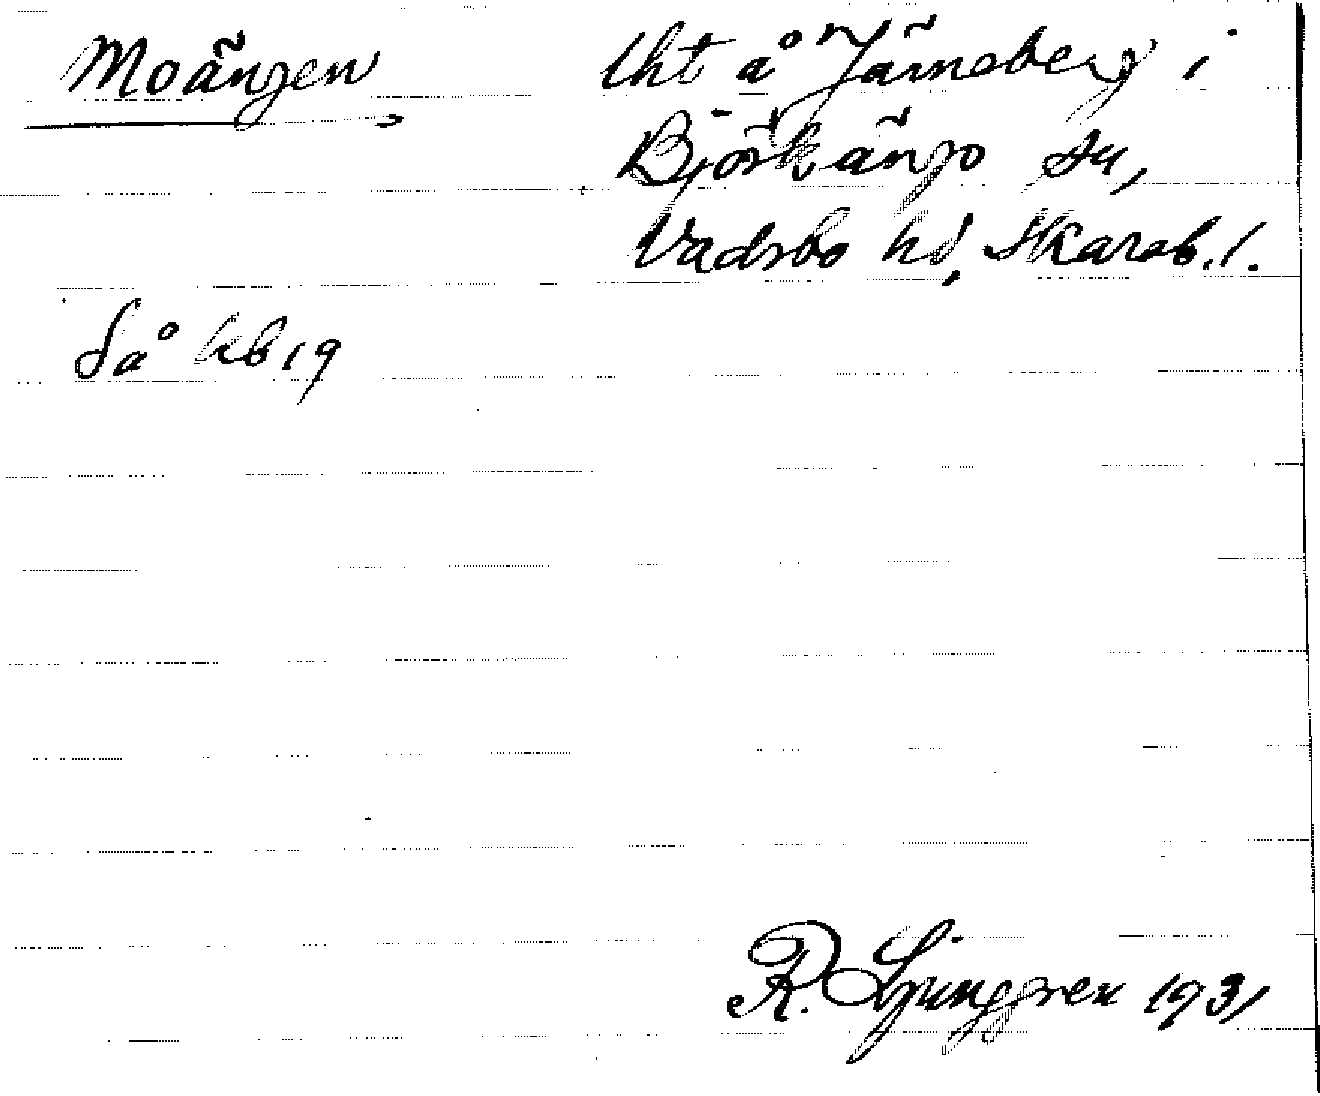 Moängen
lht å Järneberg i
Björkängs sn,
Vadsbo hd, Skarab. l.
Så kb 19
R. Ljunggren 1931